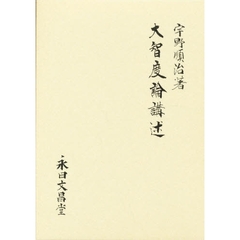 宇野順治著
大智度論講述
永田文昌堂